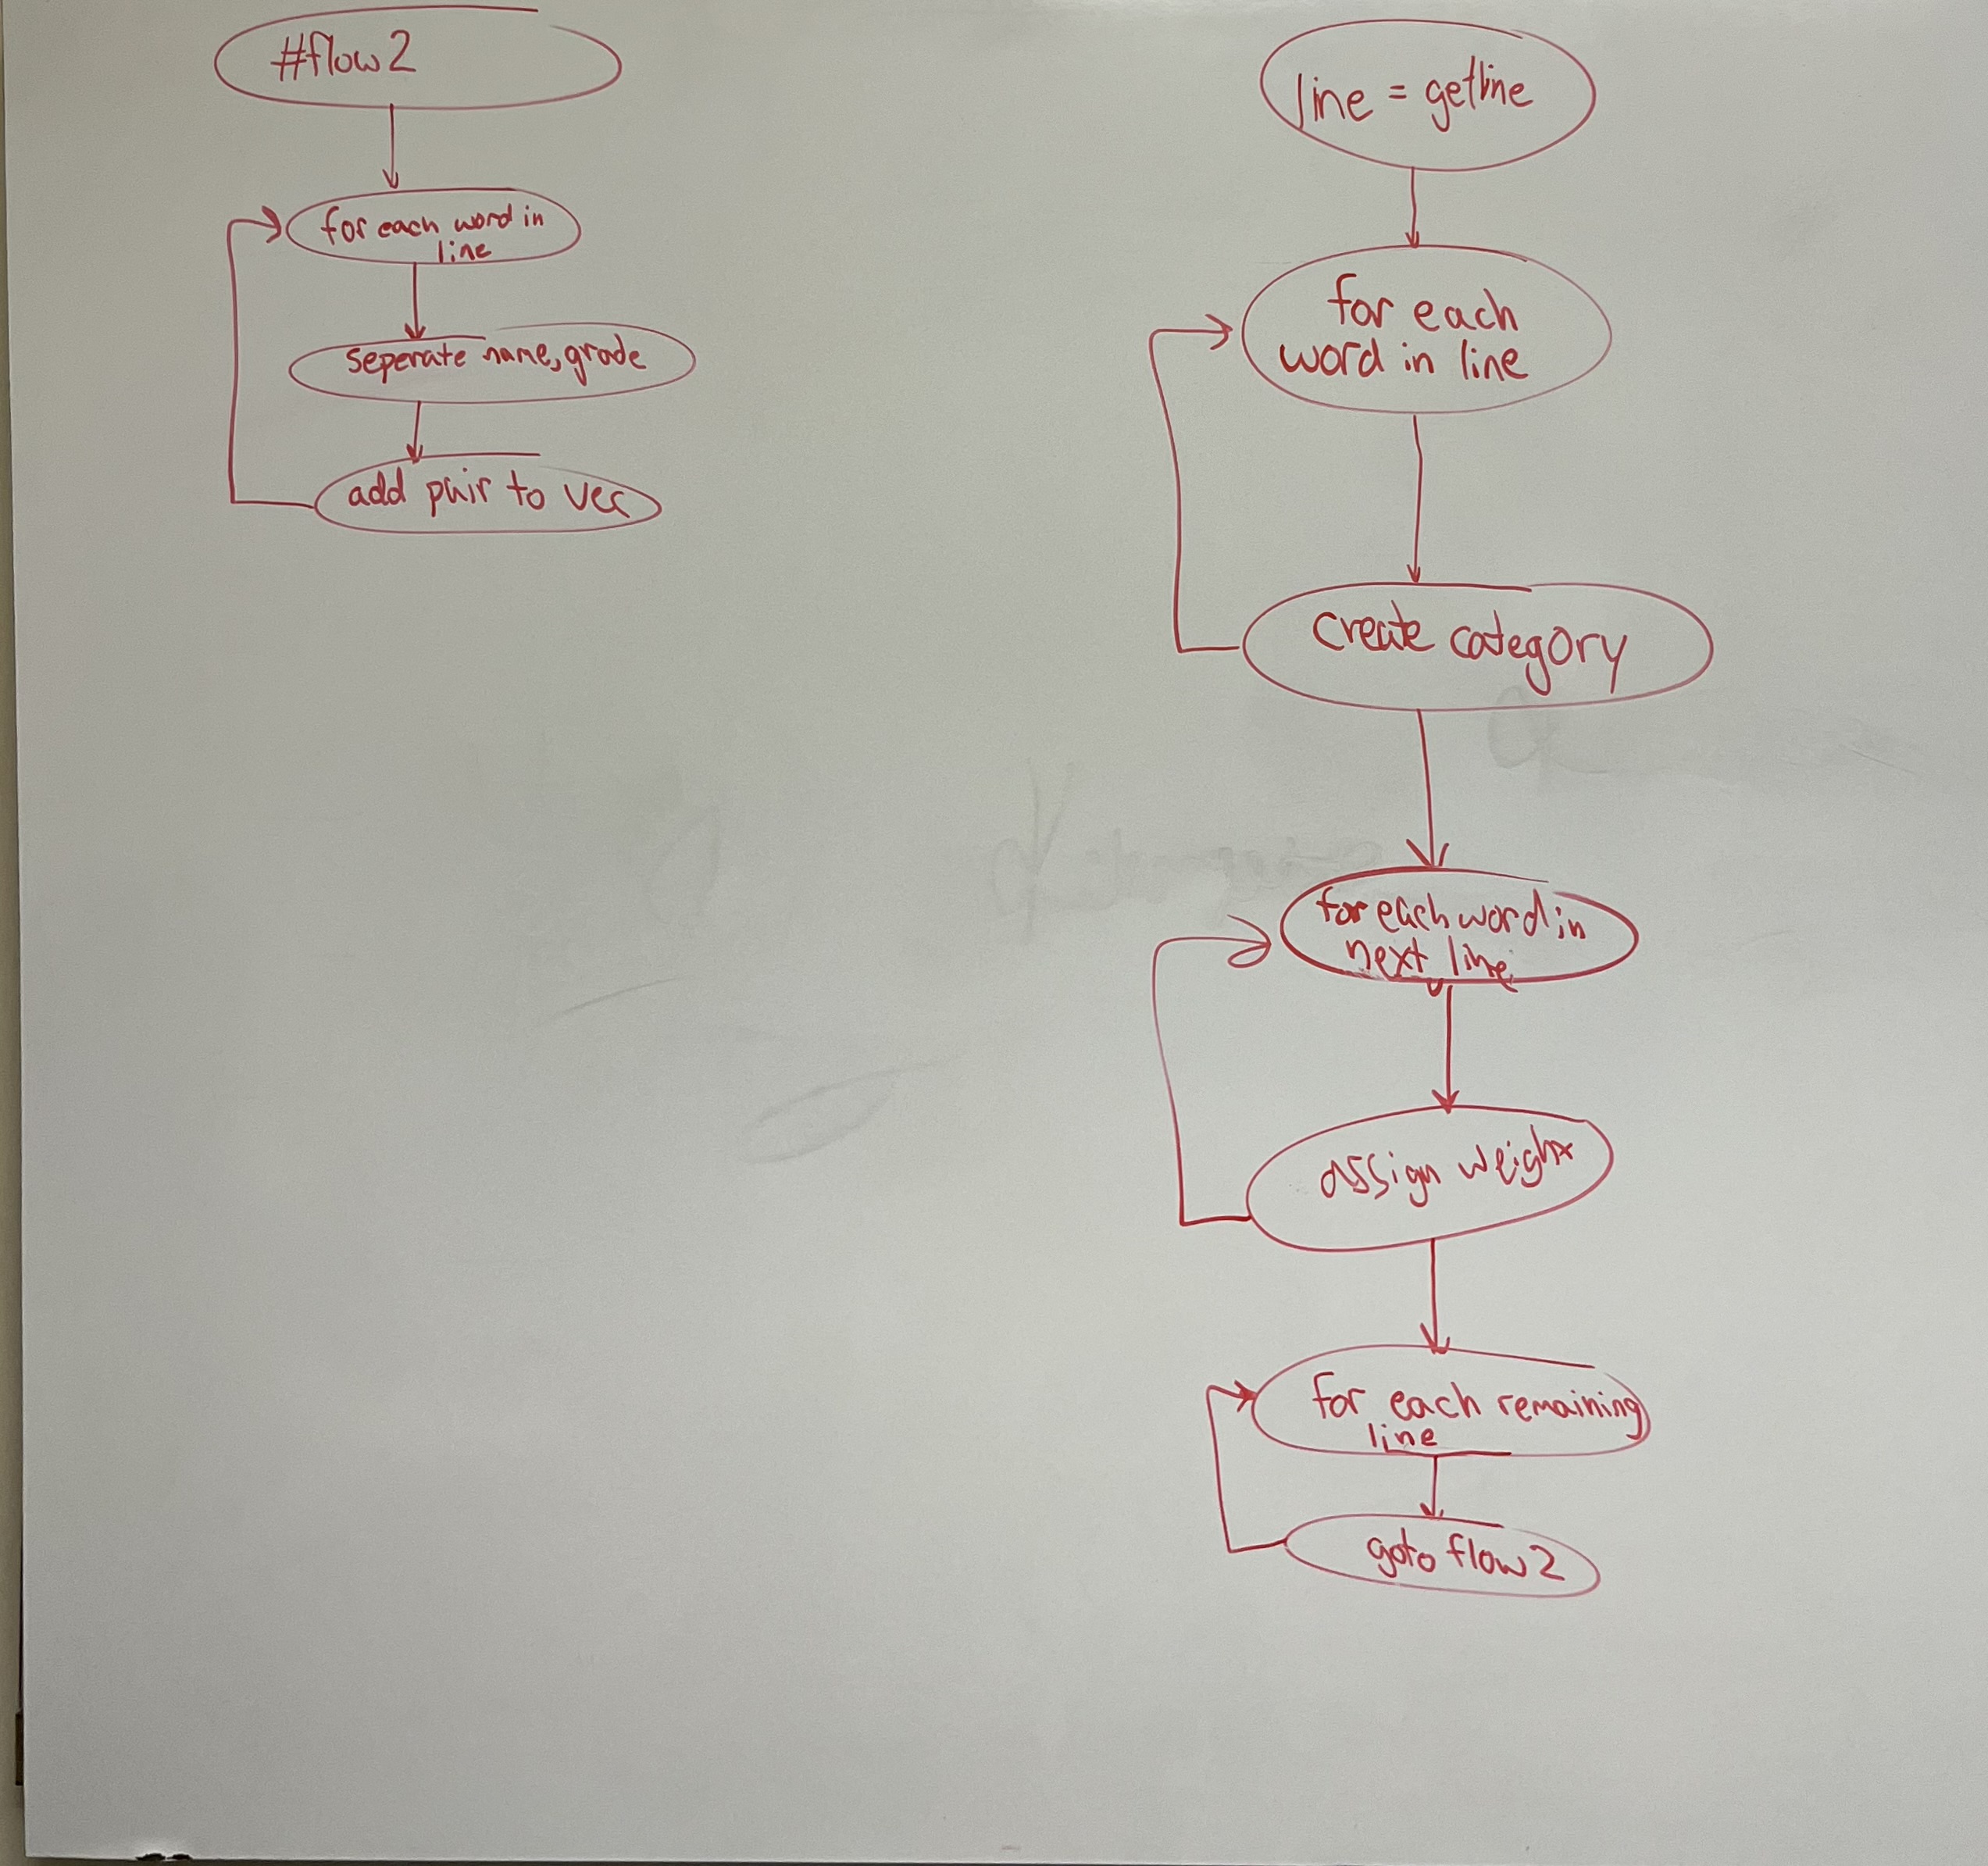 #flow2
for each word in
line
seperate name, grade
add pair to vec
line = getline
for each
word in line
create category
for each word in
next line
assign weight
for each remaining
line
goto flow 2